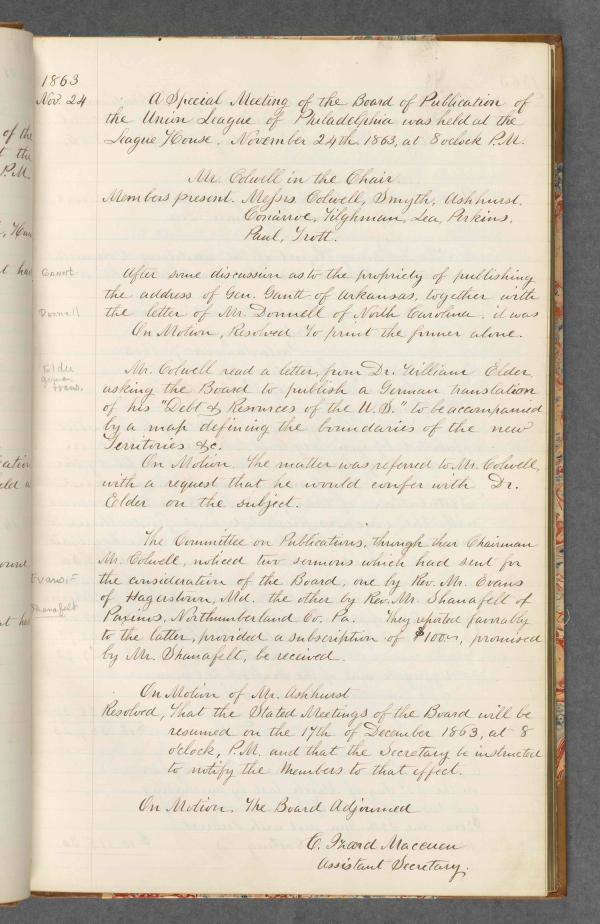 1863
Nov. 24
A Special Meeting of the Board of Publication of
the Union League of Philadelphia was held at the
League House, November 24th 1863, at 8 oclock P.M.
Mr. Colwell in the Chair.
Members present. Messrs. Colwell, Smyth, Ashhurst,
Conarroe, Tilghman, Lea, Perkins,
Paul, Trott.
After some discussion as to the propriety of publishing
the address of Gen. Gantt of Arkansas, together with
the letter of Mr. Donnell of North Carolina, it was
On Motion, Resolved To print the former alone.
Donnell
Mr. Colwell read a letter, from Dr. William Elder
asking the Board to publish a German translation
of his "Debt & Resources of the U.S." to be accompanied
by a map defining the boundaries of the new
Territories &c.
German
trans.
On Motion, The matter was referred to Mr. Colwell,
with a request that he would confer with Dr.
Elder on the subject.
The Committee on Publications, through their Chairman
Mr. Colwell, noticed two sermons which had sent for
the consideration of the Board, one by Rev. Mr. Evans
of Hagerstown, Md. the other by Rev. Mr. Shanafelt of
Paxinos, Northumberland Co. Pa. They reported favorably
to the latter, provided a subscription of $100, promised
by Mr. Shanafelt, be received.
Evans,
Shanafelt
On Motion of Mr. Ashhurst
Resolved, That the Stated Meetings of the Board will be
resumed on the 17th of December 1863, at 8
o'clock, P.M. and that the Secretary be instructed
to notify the Members to that effect.
On Motion, The Board Adjourned
C. Izard Maceuen
Assistant Secretary.
of the
the
P.M.